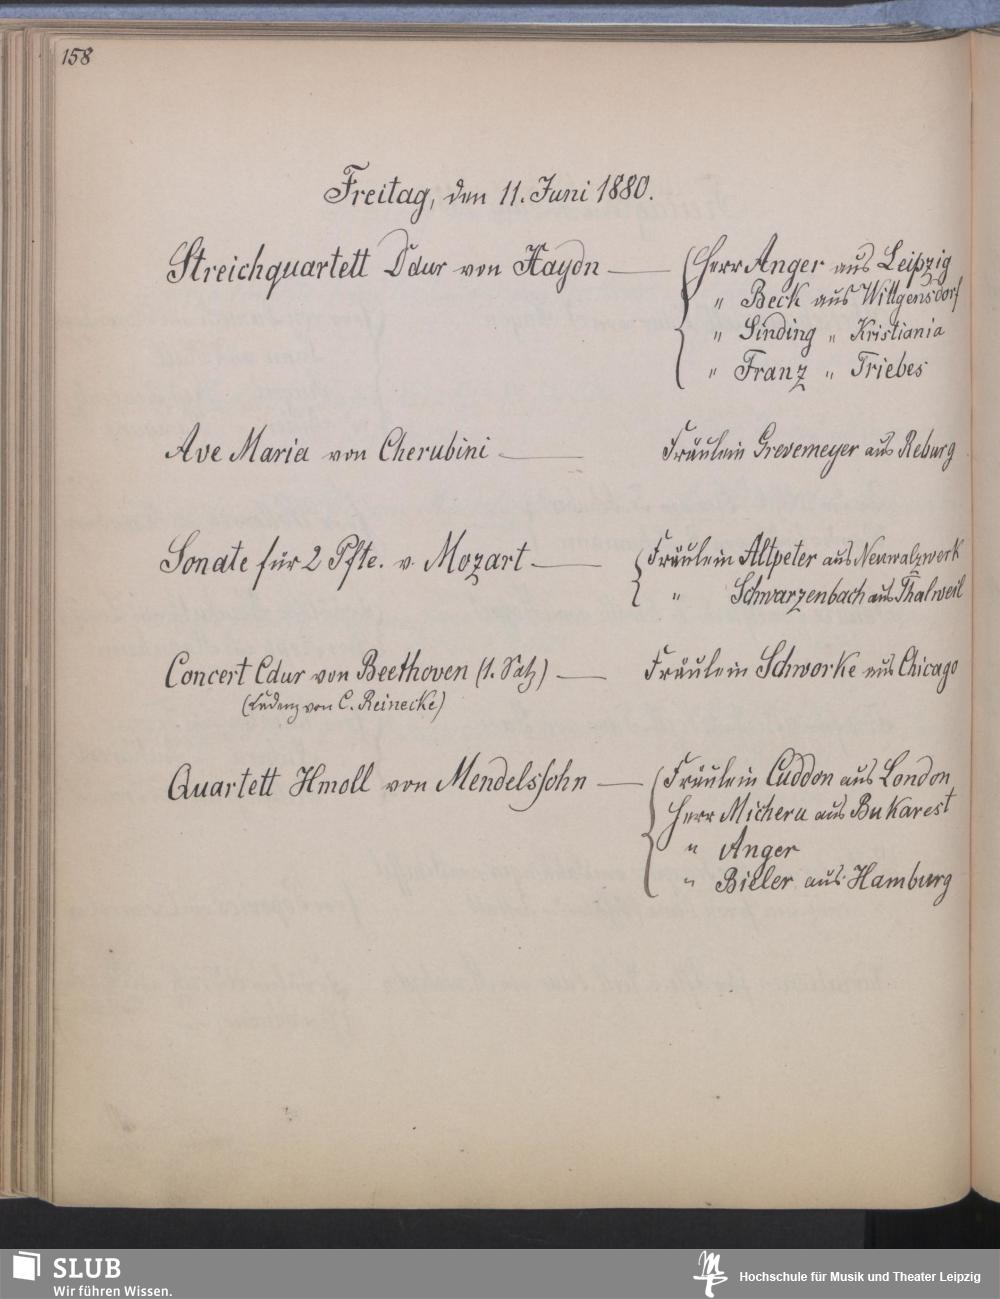 158
Freitag, den 11. Juni 1880.
Streichquartett Ddur von Haydn — Herr Anger aus Leipzig
" Beck aus Wittgensdorf
" Sinding " Kristiania
" Franz " Triebes
Ave Maria von Cherubini — Fräulein Grevemeyer aus Reburg
Sonate für 2 Pfte. v. Mozart — Fräulein Altpeter aus Neuwalzwerk
" Schwarzenbach aus Thalweil
Concert Cdur von Beethoven (1. Satz) — Fräulein Schworke aus Chicago
(Cadenz von C. Reinecke)
Quartett Hmoll von Mendelssohn — Fräulein Cuddon aus London
Herr Micheru aus Bukarest
" Anger
" Bieler aus Hamburg
SLUB
Wir führen Wissen.
Hochschule für Musik und Theater Leipzig